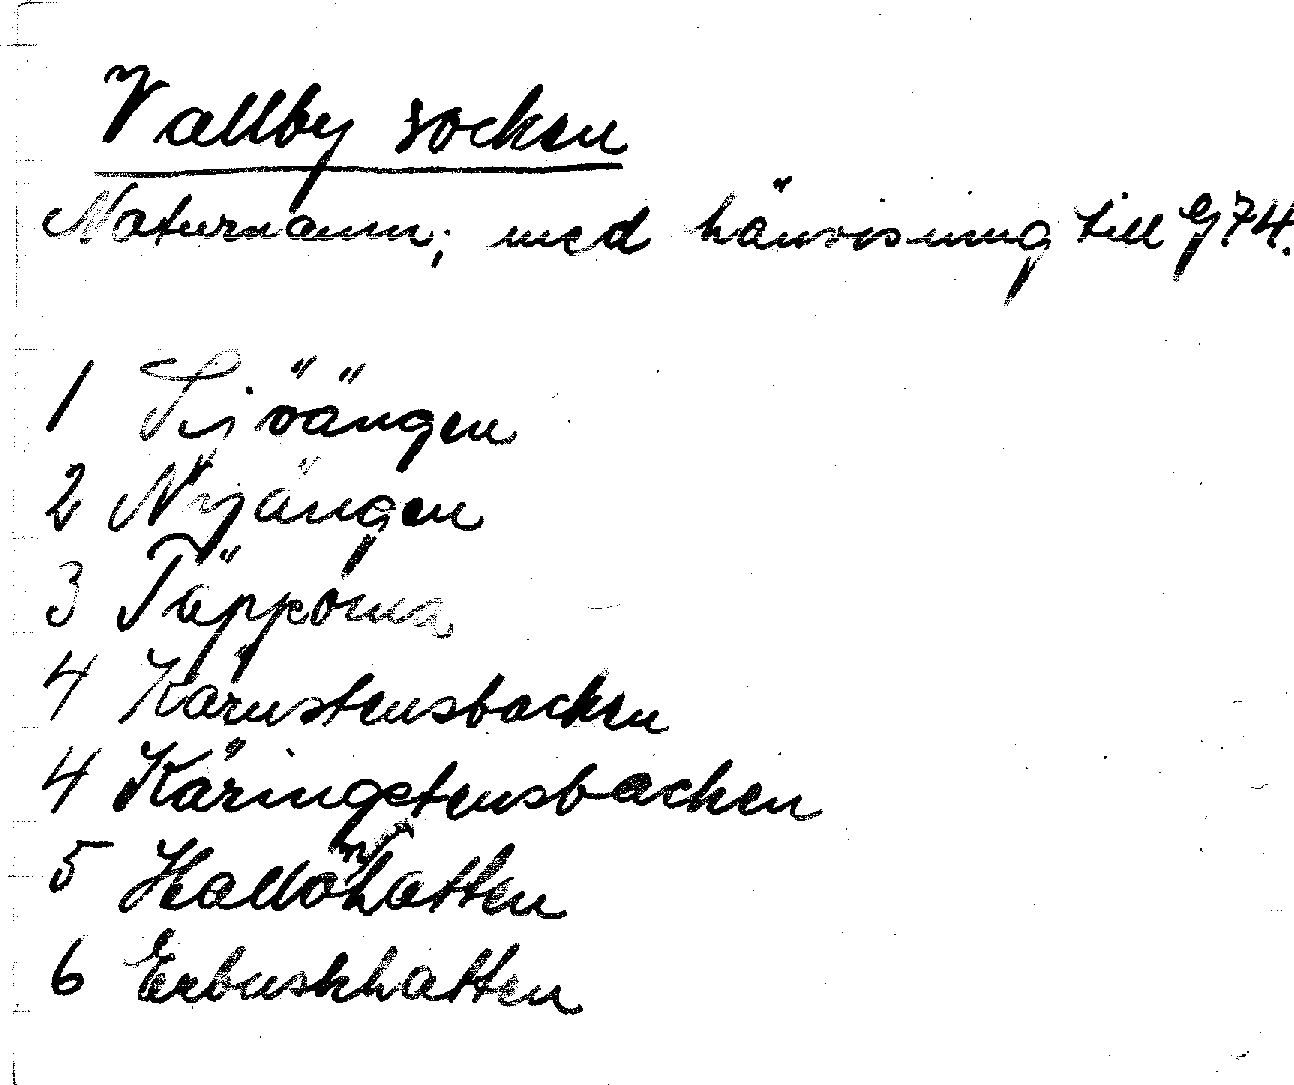 Vallby socken
Naturnamn; med hänvisning till G74.
1 Tijöängen
2 Nyängen
3 Täpporna
4 Karnstensbacken
4 Käringstensbacken
5 Hallonhatten
6 Erbuskhatten